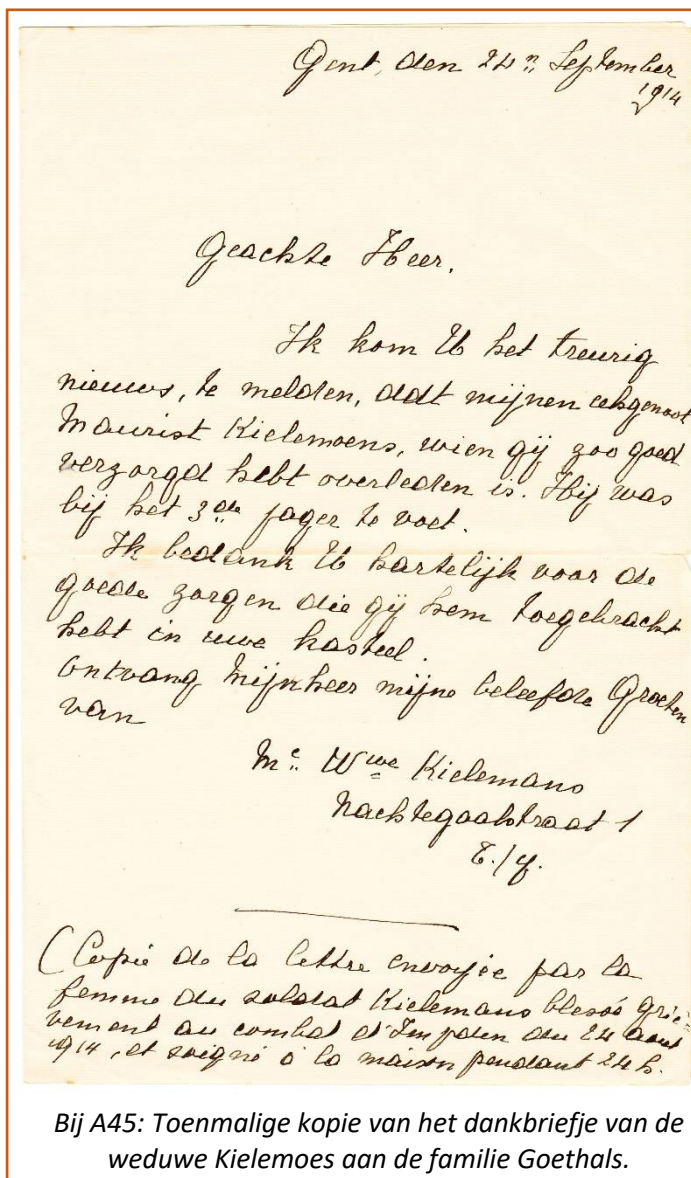 Gent, den 24n September
1914
Geachte Heer,
Ik kom U het treurig
nieuws, te melden, dat mijnen echgenoot
Maurist Kielemoens, wien gij zoo goed
verzorgd hebt overleden is. Hij was
bij het 3de jager te voet.
Ik bedank U hartelijk voor de
goede zorgen die gij hem toegebracht
hebt in uwe kasteel.
Ontvang Mijnheer mijne beleefde Groeten
van
Me Wwe Kielemans
Nachtegaalstraat 1
(Copie de la lettre envoyée par la
femme du soldat Kielemans blessé griè-
vement au combat d'Impden du 24 aout
1914, et soigné à la maison pendant 24 h.
Bij A45: Toenmalige kopie van het dankbriefje van de
weduwe Kielemoes aan de familie Goethals.